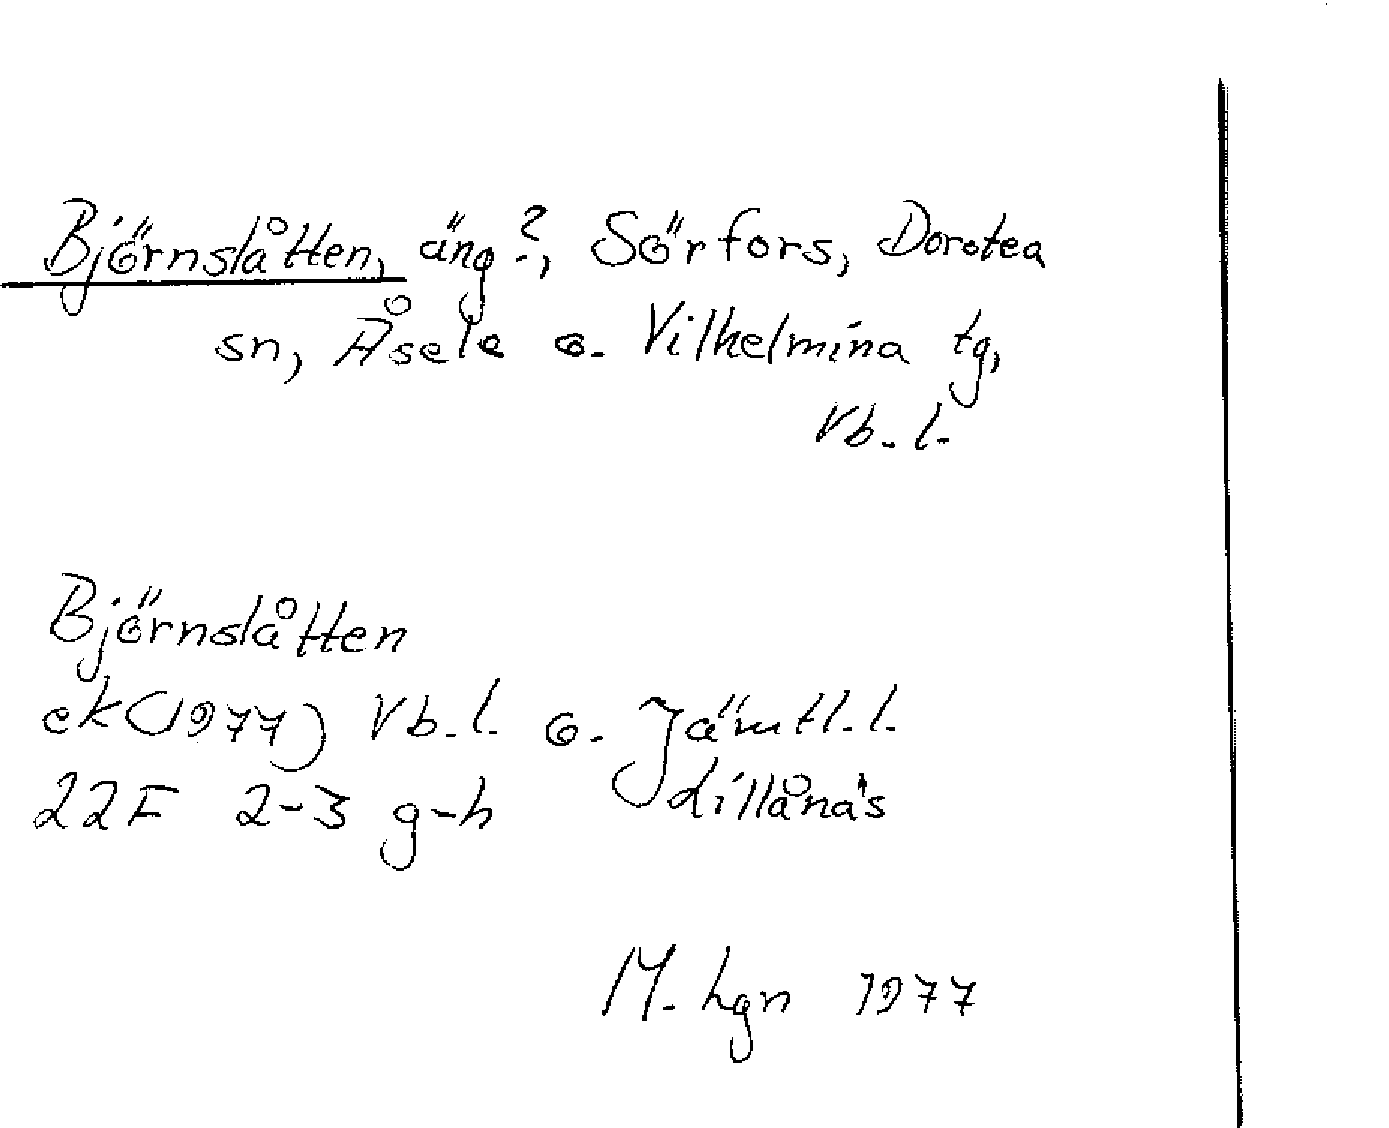 Björnslåtten, äng?, Sörfors, Dorotea
sn, Åsele o. Vilhelmina tg,
Vb. l.
Björnslåtten
ek (1977) Vb. l. o. Jämtl. l.
22F 2-3 g-h Lillånäs
M. Lgn 1977